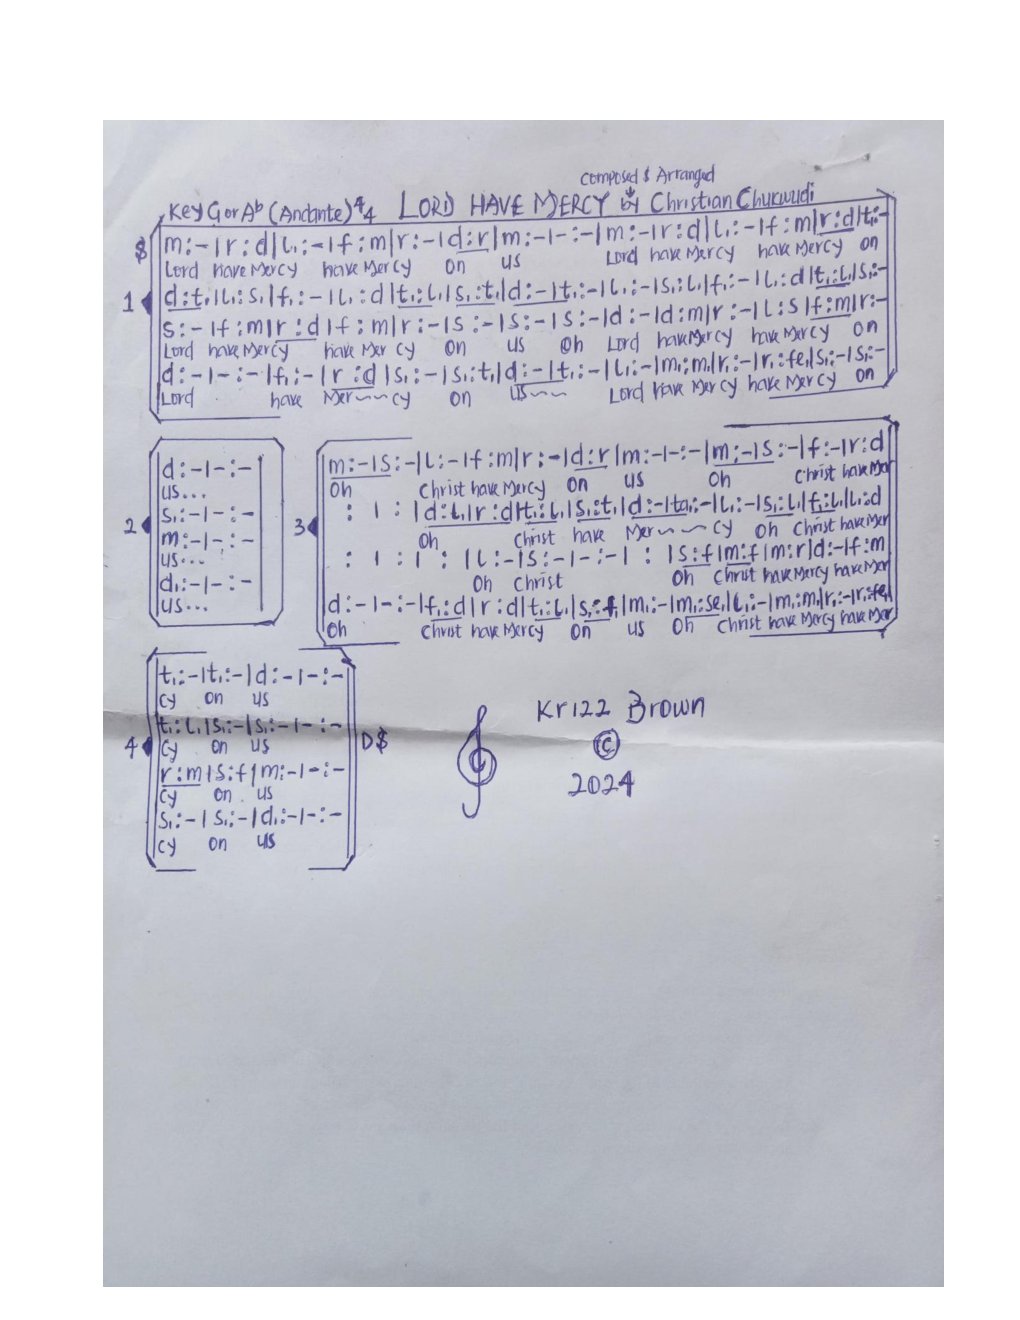 Composed & Arranged
Key G or Ab (Andante) 4/4 LORD HAVE MERCY by Christian Chukwudi
$ m:-|r:d|l₁:-|f:m|r:-|d:r|m:-|-:-|m:-|r:d|l₁:-|f:m|r:d|t₁:-
Lord have Mercy have Mercy on us Lord have Mercy have Mercy on
1 d:t₁|l₁:s₁|f₁:-|l₁:d|t₁:l₁|s₁:t₁|d:-|t₁:-|l₁:-|s₁:l₁|f₁:-|l₁:d|t₁:l₁|s₁:-
s:-|f:m|r:d|f:m|r:-|s:-|s:-|s:-|d:-|d:m|r:-|l:s|f:m|r:-
Lord have Mercy have Mercy on us Oh Lord have Mercy have Mercy on
d:-|-:-|f₁:-|r:d|s₁:-|s₁:t₁|d:-|t₁:-|l₁:-|m₁:m₁|r₁:-|r₁:fe₁|s₁:-|s₁:-
Lord have Mer~~cy on us~~ Lord have Mercy have Mercy on
2 d:-|-:-
us...
s₁:-|-:-
m:-|-:-
us...
d₁:-|-:-
us...
3 m:-|s:-|l:-|f:m|r:-|d:r|m:-|-:-|m:-|s:-|f:-|r:d
Oh Christ have Mercy on us Oh Christ have Mer
: | : |d:l₁|r:d|t₁:l₁|s₁:t₁|d:-|ta₁:-|l₁:-|s₁:l₁|f₁:l₁|l₁:d
Oh Christ have Mer~~cy Oh Christ have Mer
: | : | : |l:-|s:-|-:-| : |s:f|m:f|m:r|d:-|f:m
Oh Christ Oh Christ have Mercy have Mer
d:-|-:-|f₁:d|r:d|t₁:l₁|s₁:f₁|m₁:-|m₁:se₁|l₁:-|m₁:m₁|r₁:-|r₁:fe₁
Oh Christ have Mercy on us Oh Christ have Mercy have Mer
4 t₁:-|t₁:-|d:-|-:-
cy on us
t₁:l₁|s₁:-|s₁:-|-:-
cy on us
r:m|s:f|m:-|-:-
cy on us
s₁:-|s₁:-|d₁:-|-:-
cy on us
D$
Kr122 Brown
©
2024